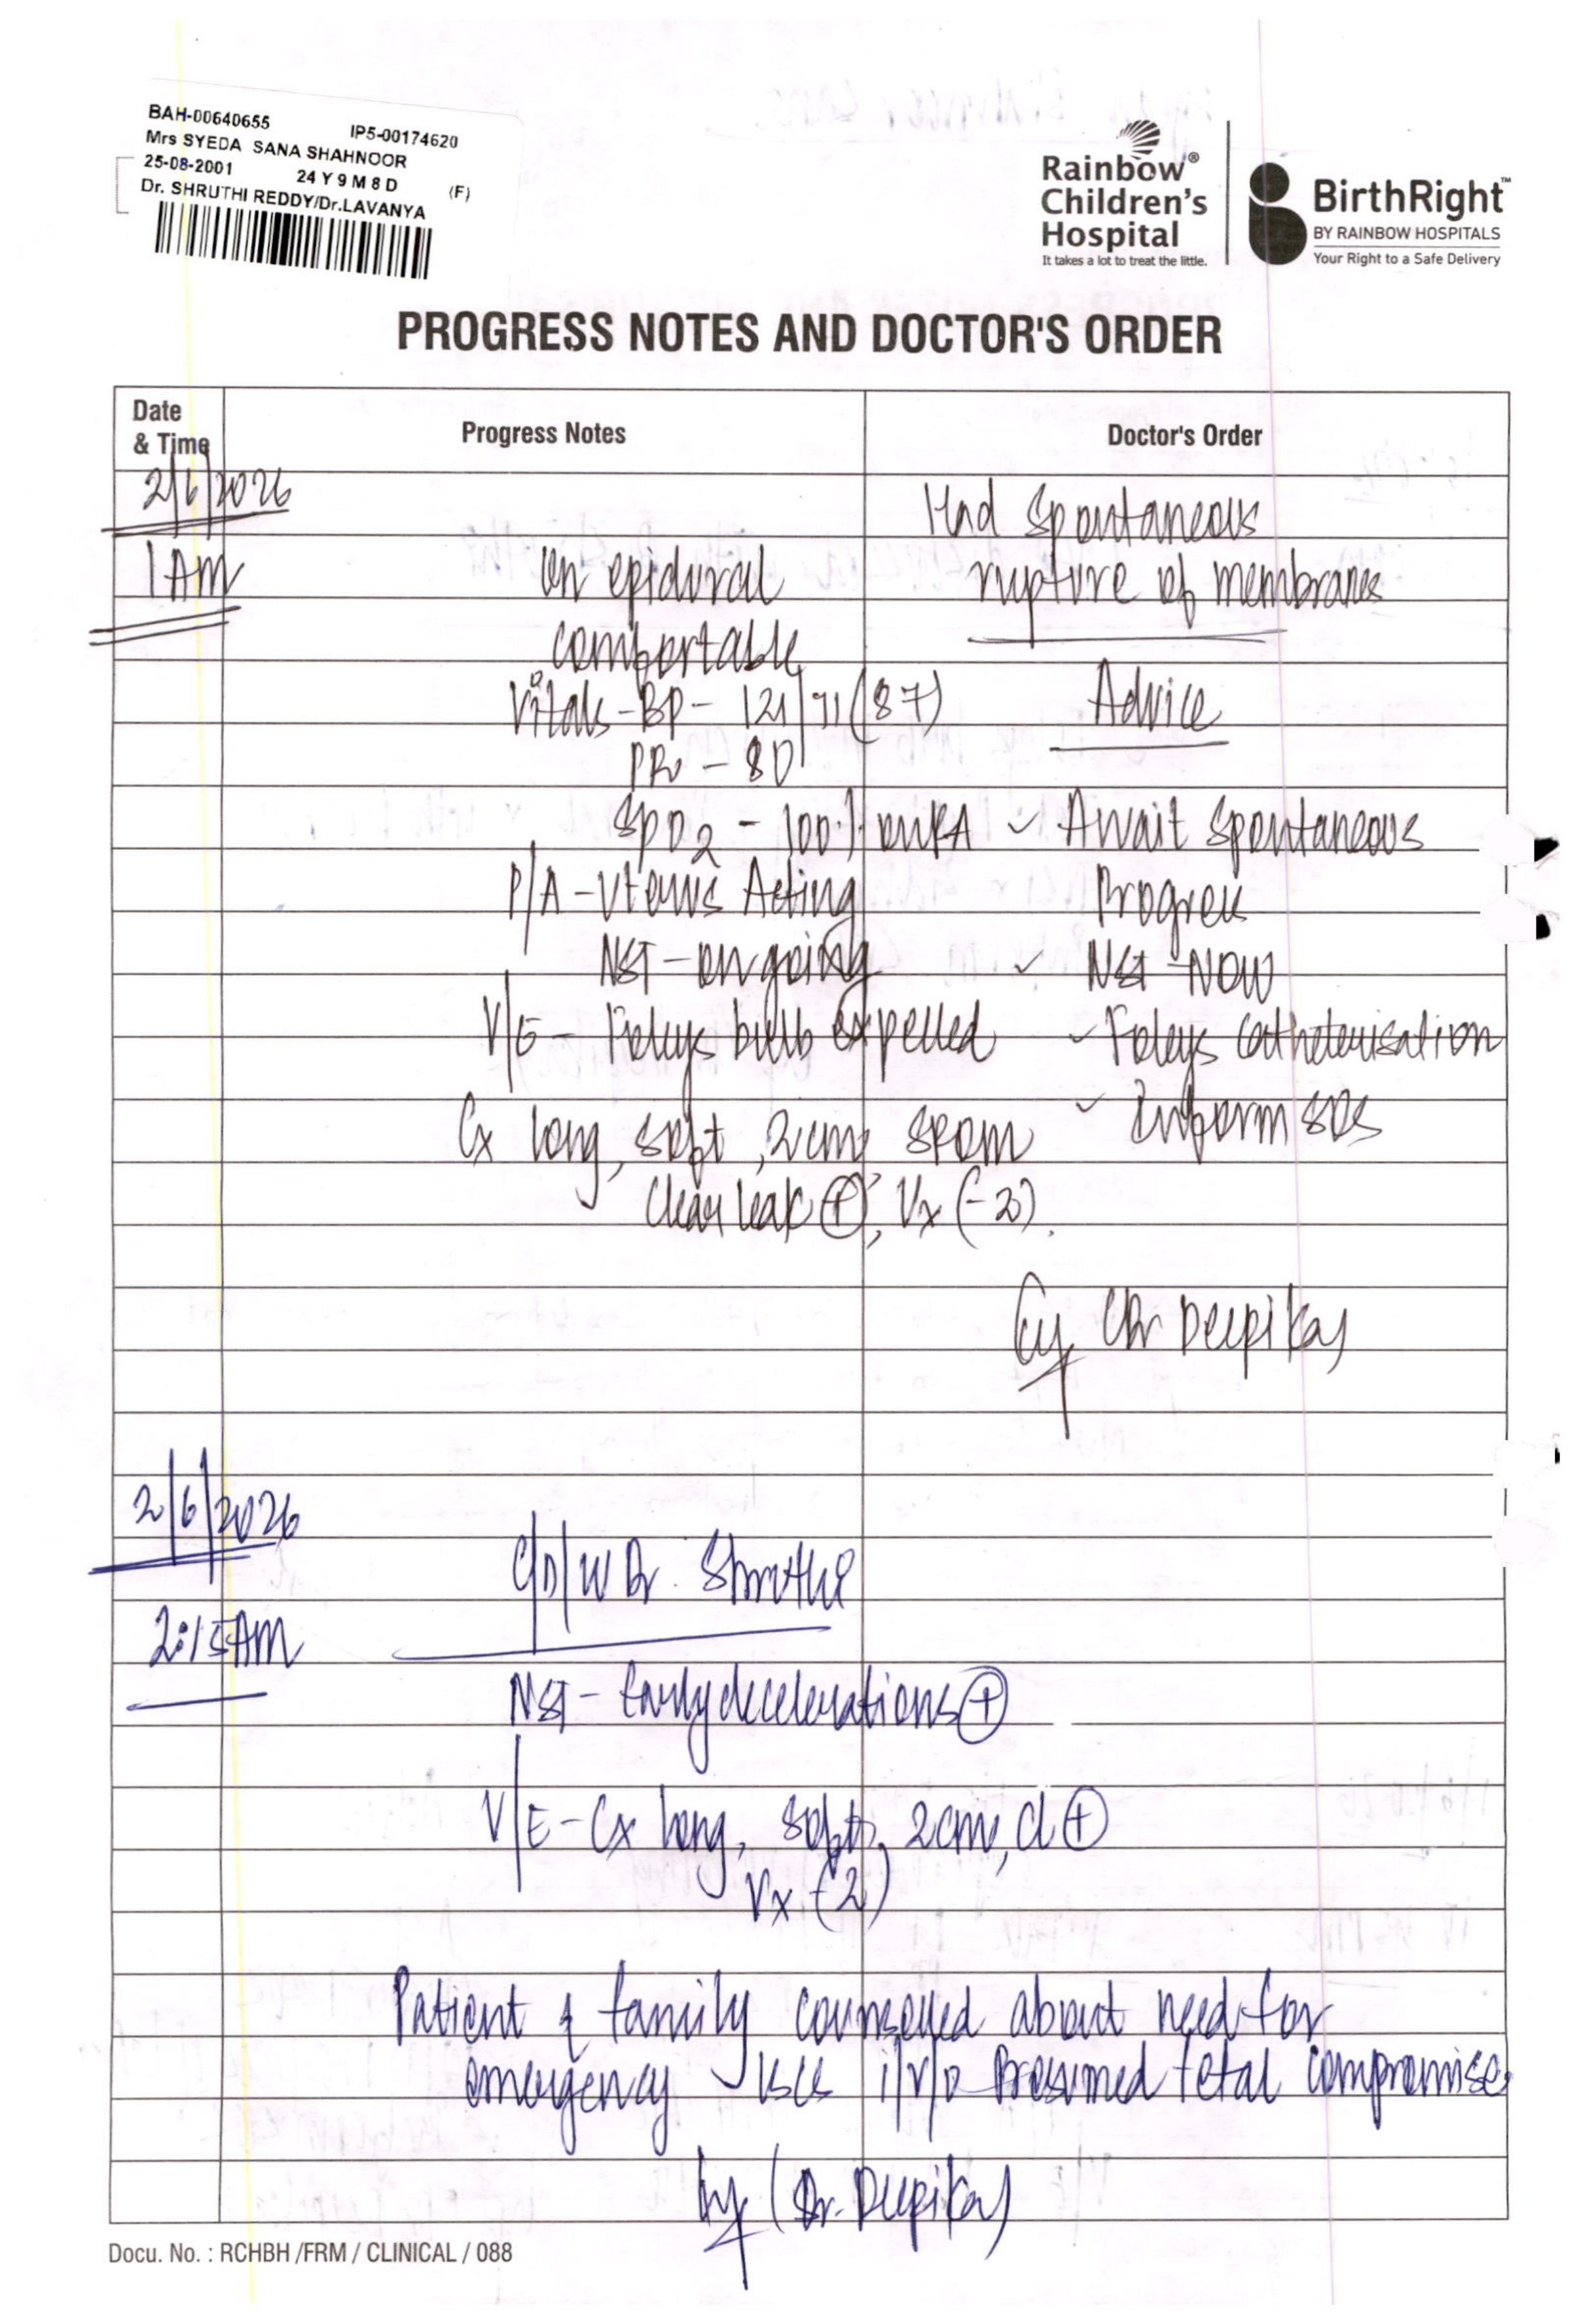 BAH-00640655 IP5-00174620
Mrs SYEDA SANA SHAHNOOR
25-08-2001 24 Y 9 M 8 D (F)
Dr. SHRUTHI REDDY/Dr.LAVANYA
Rainbow®
Children's
Hospital
It takes a lot to treat the little.
BirthRight™
BY RAINBOW HOSPITALS
Your Right to a Safe Delivery
PROGRESS NOTES AND DOCTOR'S ORDER
Date & Time
Progress Notes
Doctor's Order
2/6/2026
1 AM
On epidural
comfortable
Vitals - BP - 121/71 (87)
PR - 80
SpO2 - 100% on RA
P/A - Uterus Acting
NST - ongoing
V/E - Foleys bulb expelled
Cx long, soft, 2cm, SROM
Clear leak ⊕, Vx (-2).
Had Spontaneous
rupture of membranes
Advice
✓ Await Spontaneous
Progress
✓ NST - NOW
✓ Foleys Catheterisation
✓ Inform SOS
Dr Deepika
2/6/2026
2:15 AM
C/D/W Dr. Shruthi
NST - Early decelerations ⊕
V/E - Cx long, soft, 2cm, cl ⊕
Vx (-2)
Patient & family counselled about need for
emergency LSCS i/v/o Presumed fetal compromise.
(Dr. Deepika)
Docu. No. : RCHBH /FRM / CLINICAL / 088